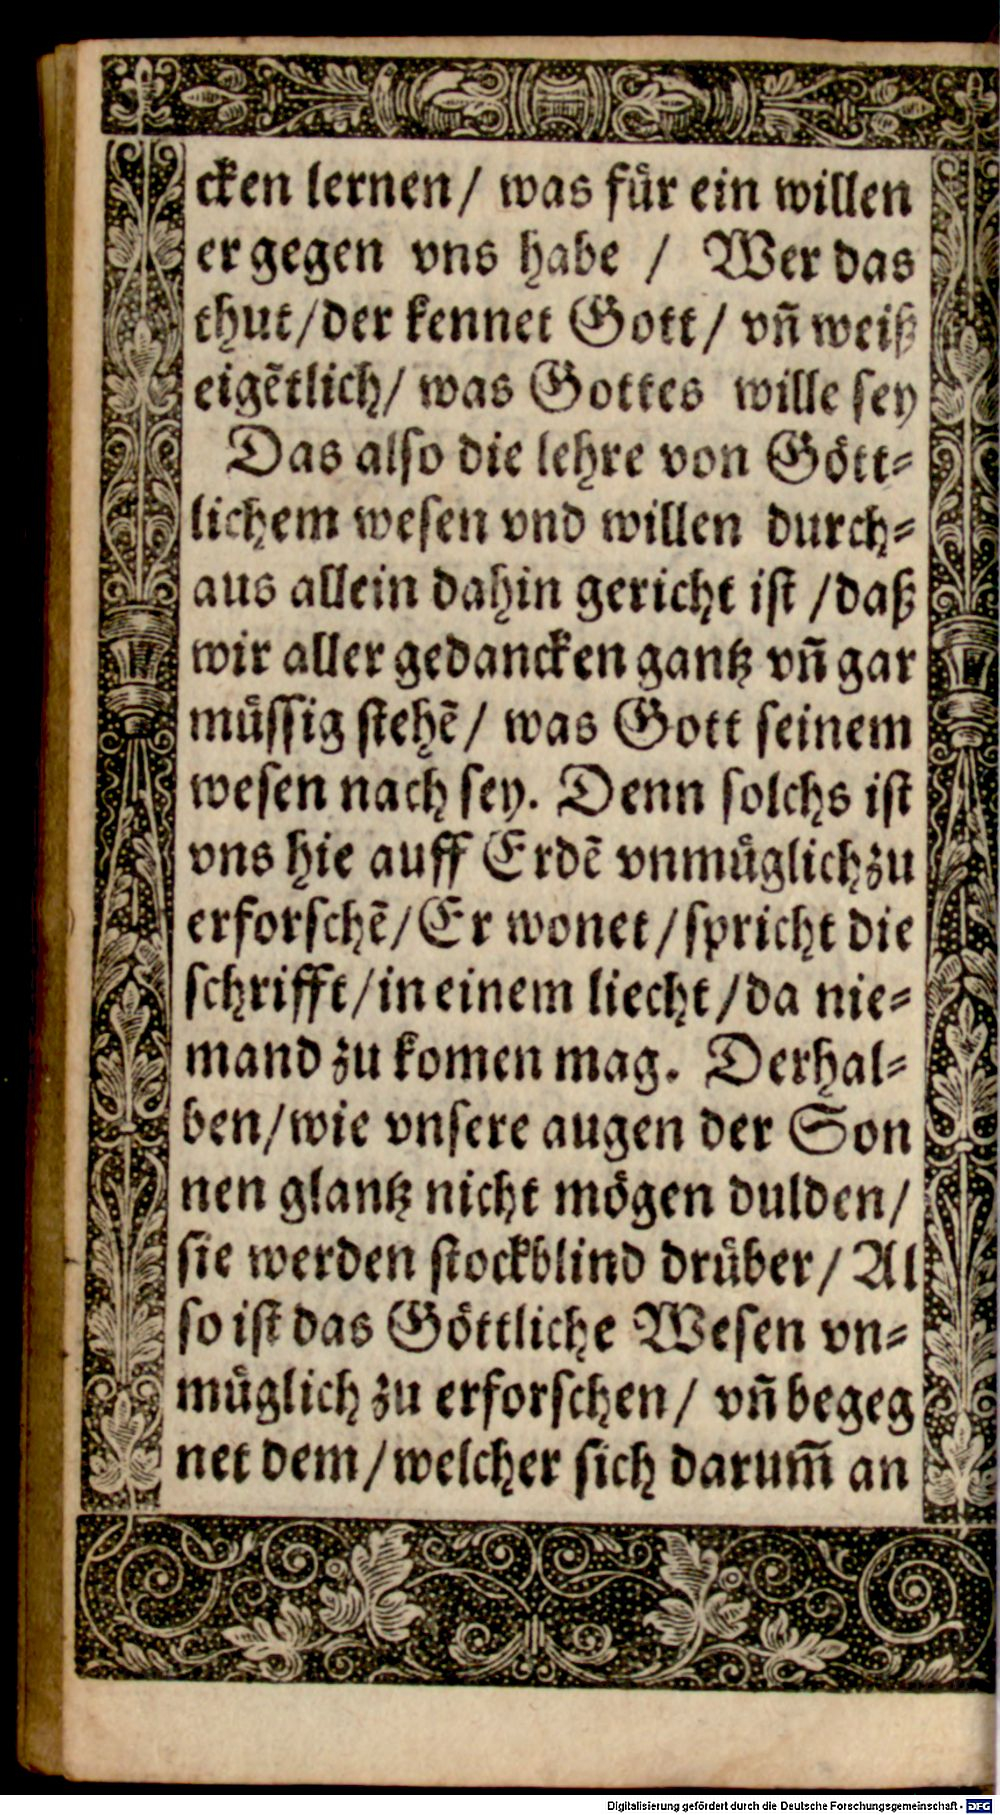 cken lernen/ was für ein willen
er gegen vns habe / Wer das
thut/der kennet Gott/ vn̄ weiß
eigẽtlich/ was Gottes wille sey
Das also die lehre von Gött-
lichem wesen vnd willen durch-
aus allein dahin gericht ist /daß
wir aller gedancken gantz vn̄ gar
müssig stehẽ/ was Gott seinem
wesen nach sey. Denn solchs ist
vns hie auff Erdẽ vnmüglich zu
erforschẽ/Er wonet/spricht die
schrifft/in einem liecht/da nie-
mand zu komen mag. Derhal-
ben/wie vnsere augen der Son
nen glantz nicht mögen dulden/
sie werden stockblind drüber/ Al
so ist das Göttliche Wesen vn-
müglich zu erforschen/ vn̄ begeg
net dem/welcher sich darum̄ an
Digitalisierung gefördert durch die Deutsche Forschungsgemeinschaft - DFG